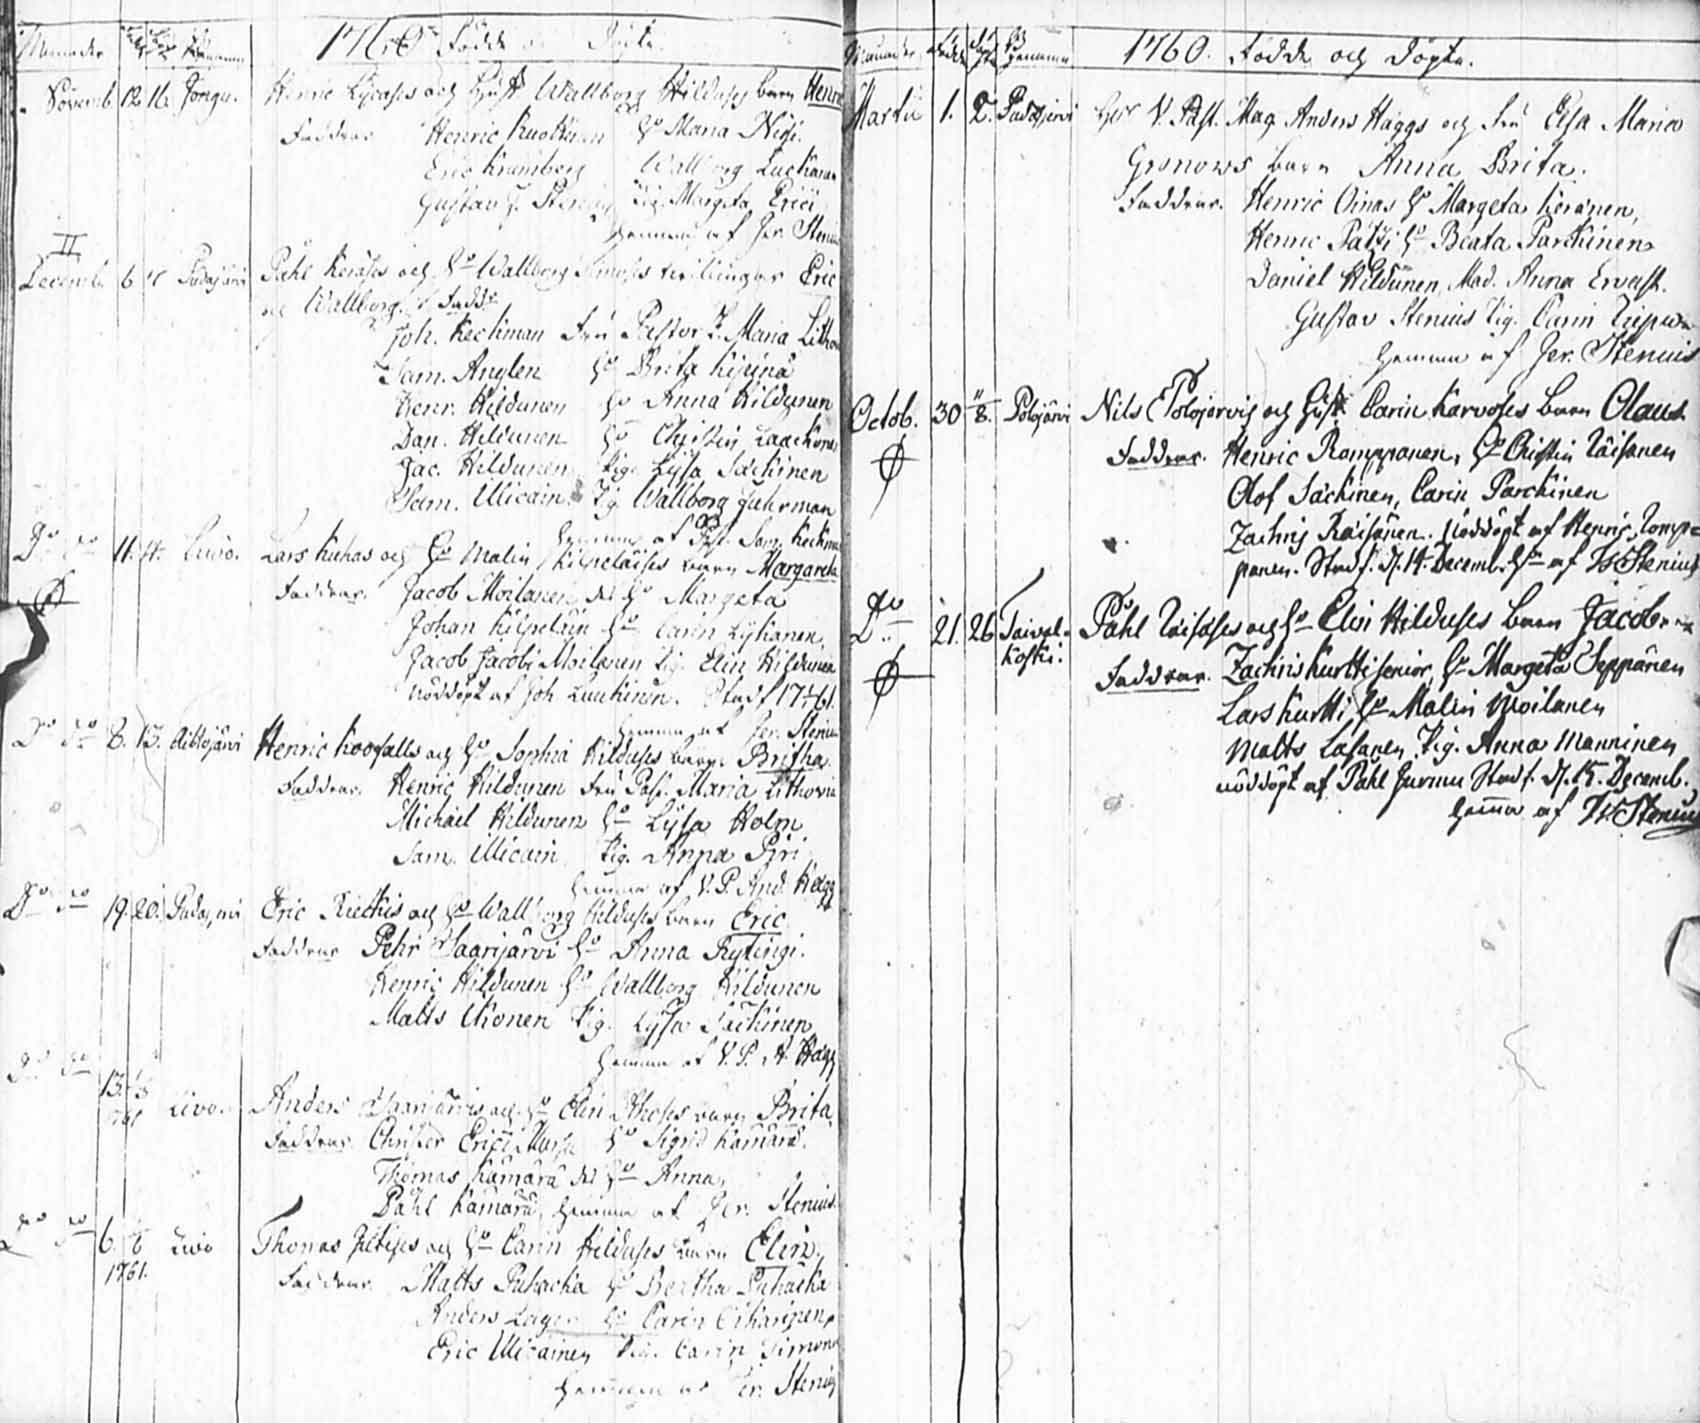 Månader
1760 Födde och Döpte.
Novemb. 12 16. Jongu. Henric Lycases och Hust. Wallborg Hilduses barn Henric
Faddrar. Henric Kuokinen Ho Maria Nisi.
Eric Krumberg Wallborg Luckanen
Gustav J. Stenius Pig. Margeta Erici
hemma af Jer. Stenius
II
Decemb. 6 Pudasjärvi Påhl Keräses och Ho Wallborg Simoses tvillingar Eric
och Wallborg. Faddr.
Joh. Keckman Fru Pastor S. Maria Lithov
Sam. Anglen Ho Brita Kipinä
Henr. Hildunen Ho Anna Hildunen
Dan. Hildunen Ho Christin Laackonen
Jac. Hildunen Pig. Lysa Säckinen
Sam. Illicain. Pig. Wallborg Fuhrman
hemma af Past. Sam. Keckman
Do Do 11. 14. Livo. Lars Kuhas och Ho Malin Kilpeläises barn Margareta
Faddrar. Jacob Moilanen des Ho Margeta
Johan Kilpeläin Ho Carin Lyhanen.
Jacob Jacobs Moilanen Pig. Elin Hildunen
nöddöpt af Joh Luckinen. Stadf 17 61.
hemma af Jer. Stenius
Do Do 8. 13. Aittojärvi Henric Koosfalls och Ho Sophia Hilduses barn Britha
Faddrar. Henric Hildunen Fru Past. Maria Lithovia
Michael Hildunen Ho Lysa Holm
Sam. Illicain Pig. Anna Piri
hemma af V. P. And. Hägg
Do Do 19. 20. Pudasjervi Eric Riekkis och Ho Wallborg Hilduses barn Eric
Faddrar Pehr Saarijärvi Ho Anna Rytingi.
Henric Hildunen Ho Wallborg Hildunen
Matts Ikonen Pig. Lysa Säckinen
hemma af V. P. A. Hägg
Do Do 13. 761 Livo. Anders Saarijärvis och Ho Elin Ahoses barn Brita
Faddrar. Christer Erici Mursu Ho Sigrid Kämärä.
Thomas Kämärä des Ho Anna,
Påhl Kämärä, hemma af Jer. Stenius.
Do Do 6. 1761. Livo Thomas Pitises och Ho Carin Hilduses barn Elin.
Faddrar. Matts Puhacka Ho Bertha Puhacka
Anders Lager Ho Carin Oikarinen
Eric Illicainen Pig. Carin Simons
hemma af Jer. Stenius
Månader Födde Döpte Hemman
1760. Födde och Döpte.
Martii 1. 2. Pudasjervi Herr V. Past. Mag. Anders Häggs och Fru Elsa Maria
Gronows barn Anna Brita.
Faddrar. Henric Oinas Ho Margeta Keränen,
Henric Pätsi Ho Beata Parckinen
Daniel Hildunen, Mad. Anna Ervast.
Gustav Stenius Pig. Carin
hemma af Jer. Stenius
Octob. 30 Polojärvi Nils Polojervis och Hust. Carin Karvoses barn Claus
Faddrar. Henric Romppanen, Ho Christin Räisänen
Olof Säckinen, Carin Parckinen
Zachris Räisänen. Nöddöpt af Henric Romp=
panen. Stadf. d. 14. Decemb. Hem af Is Stenius
Do Do 21. 26 Taival=
koski. Påhl Räisäses och Ho Elin Hilduses barn Jacob.
Faddrar. Zachris Kurtti senior, Ho Margeta Seppänen
Lars Kurtti Ho Malin Moilanen
Matts Lasanen, Pig. Anna Manninen
nöddöpt af Påhl Gurmu Stadf. d. 15. Decemb.
hemma af Is Stenius